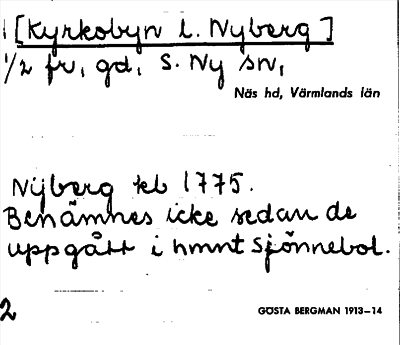 [Kyrkobyn l. Nyberg]
1/2 fr, gd, S. Ny sn,
Näs hd, Värmlands län
Nÿberg kb 1775.
Benämnes icke sedan de
uppgått i hmnt Sjönnebol.
2
GÖSTA BERGMAN 1913–14